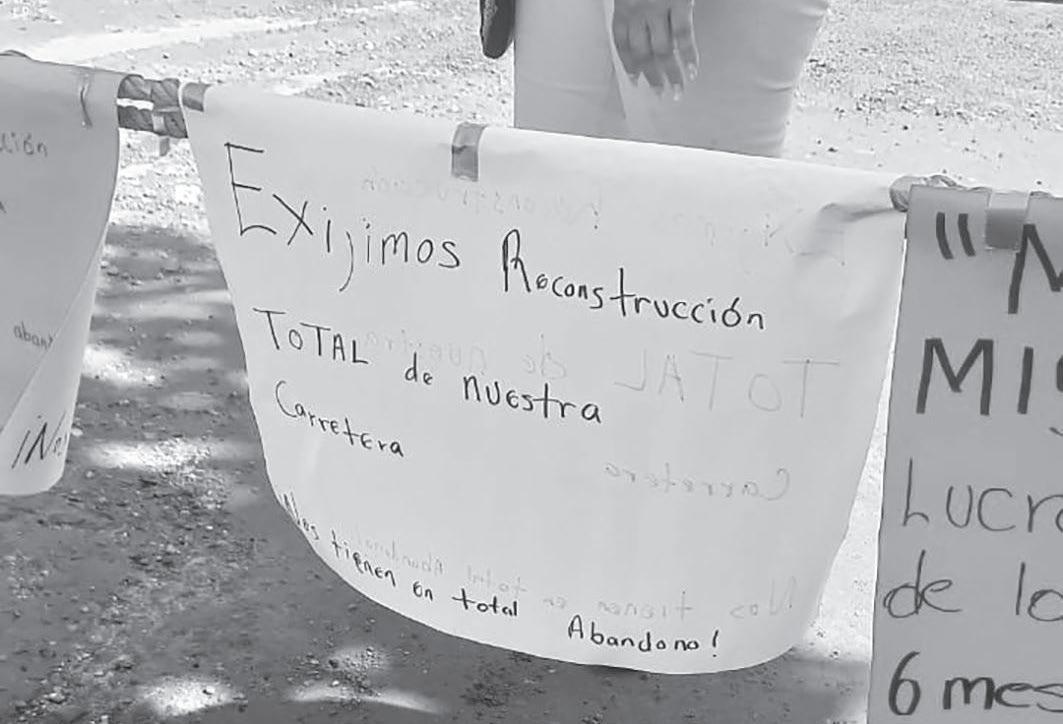 Exijimos Reconstrucción
TOTAL de nuestra
Carretera
Nos tienen en total Abandono!
"M
MI
Lucr
de lo
6 mes
ción
aban
¡No